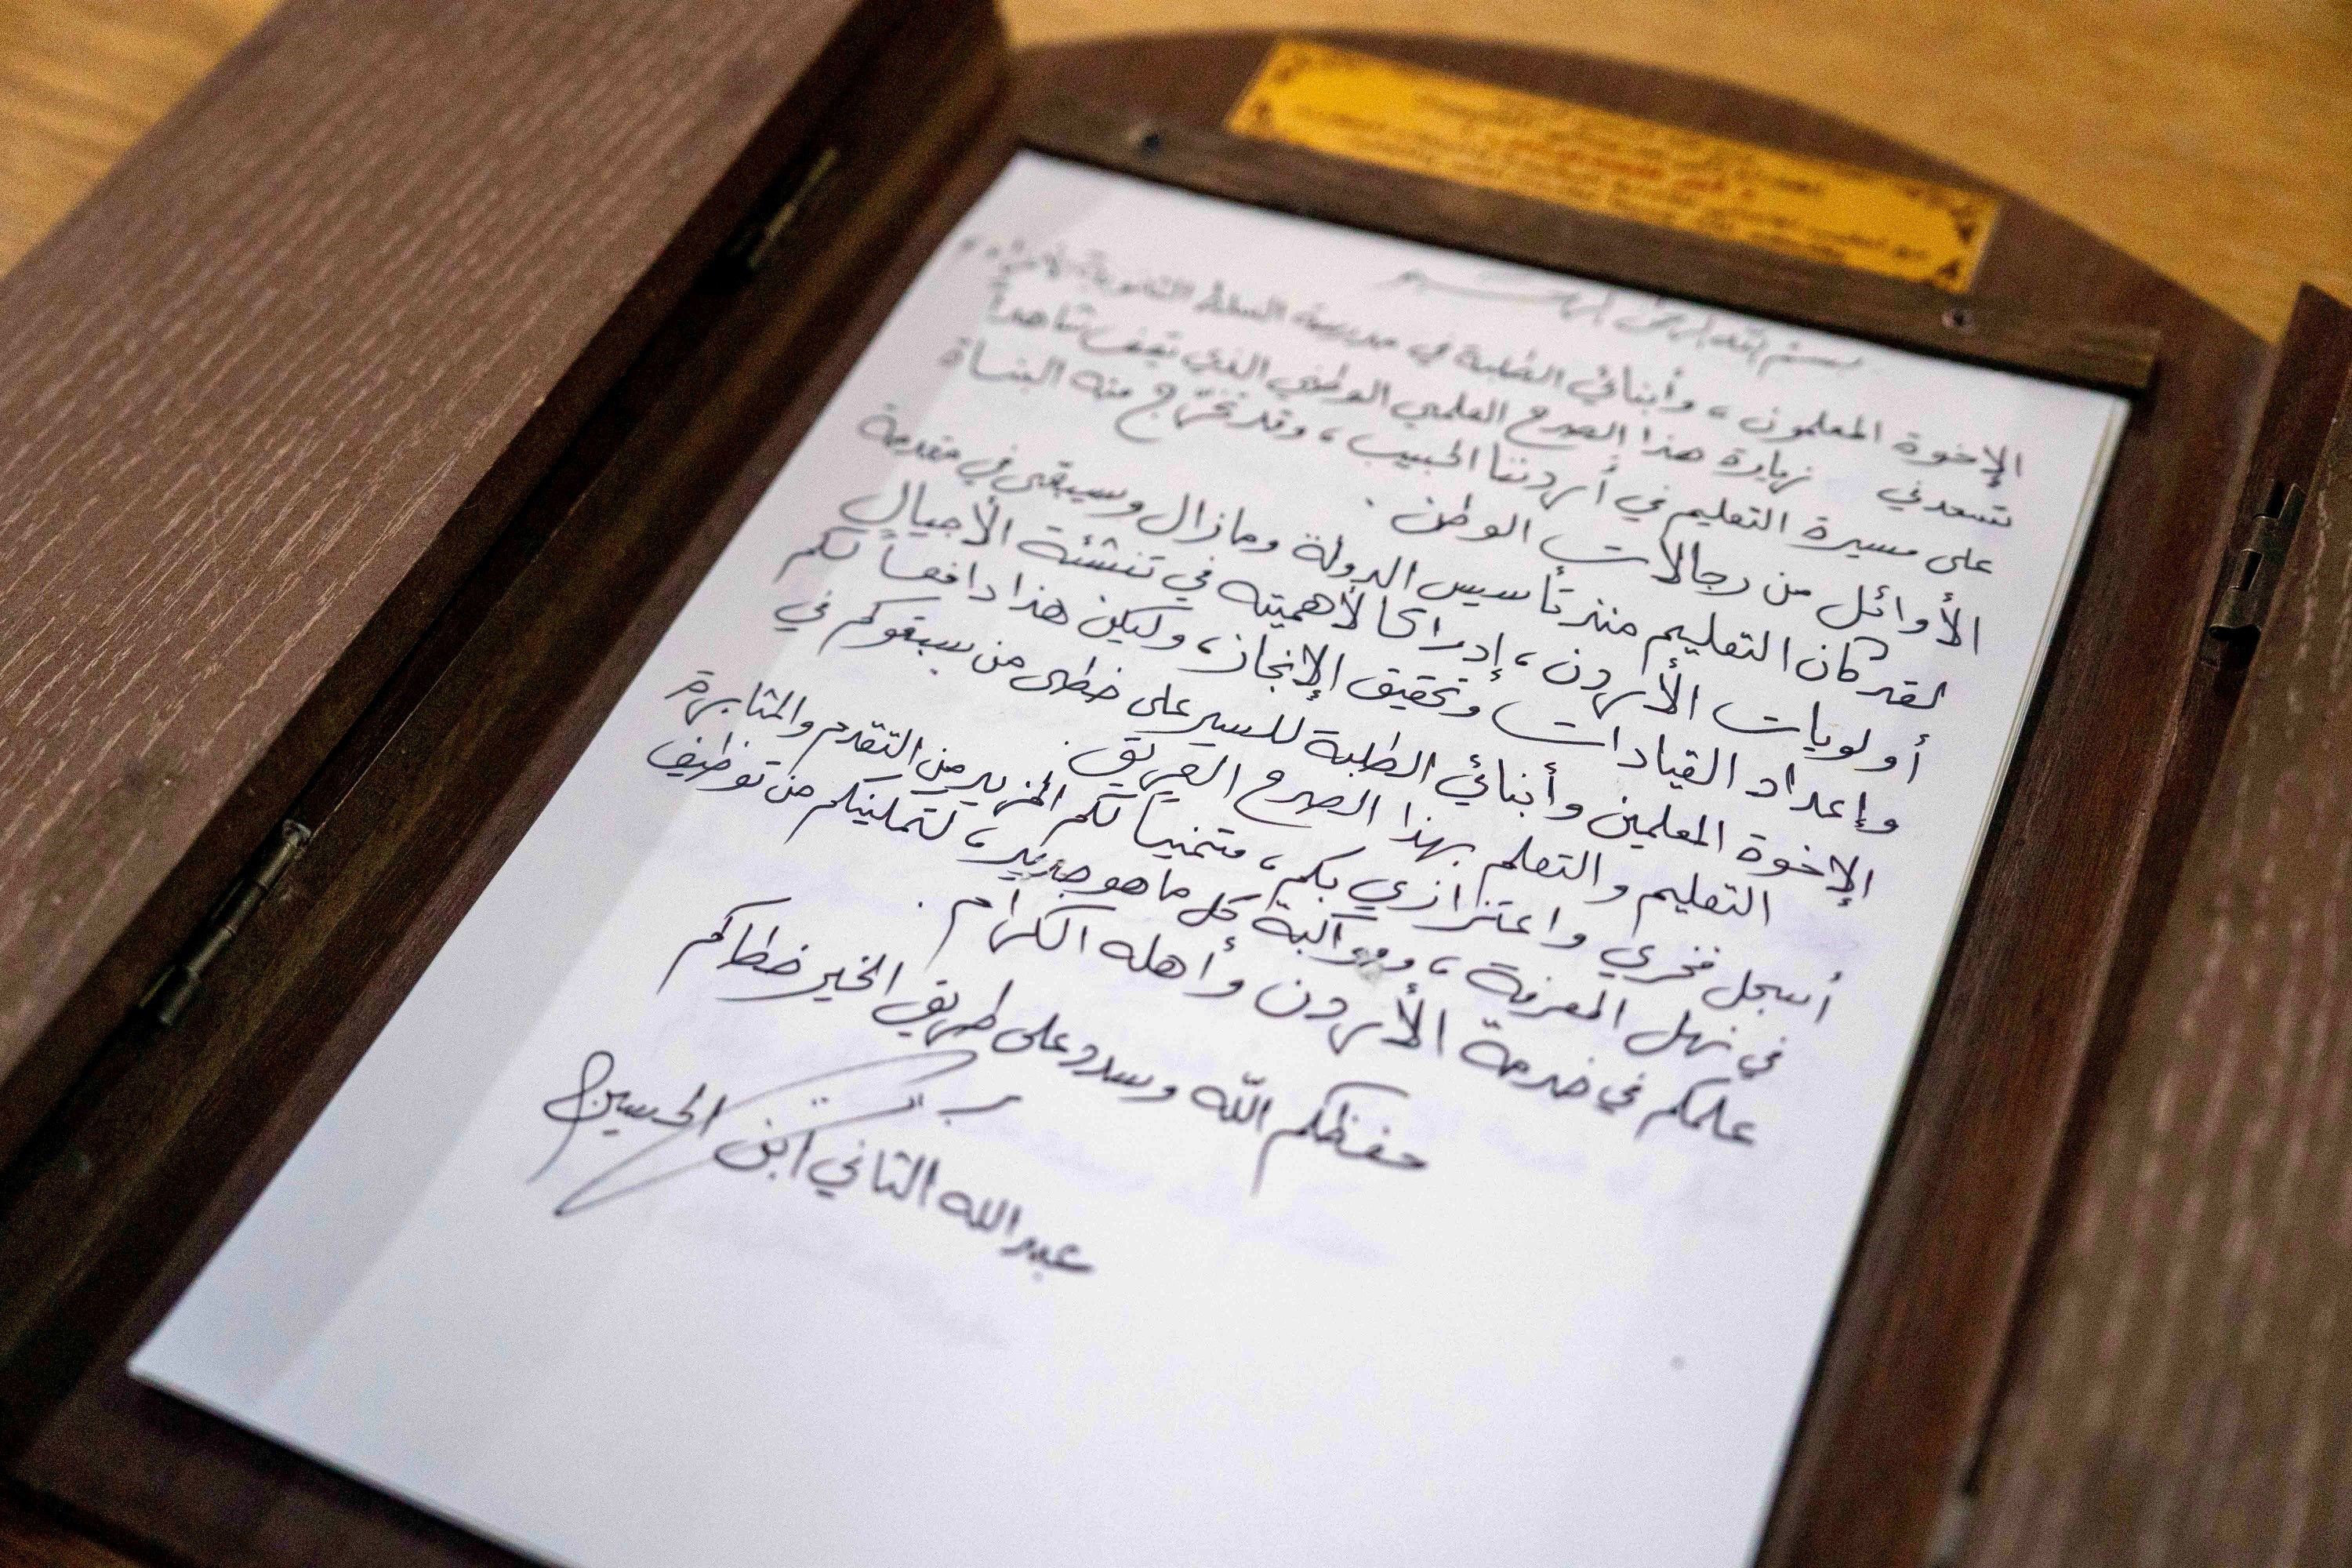 بسم الله الرحمن الرحيم
الإخوة المعلمون، وأبنائي الطلبة في مدرسة السلط الثانوية
تسعدني زيارة هذا الصرح العلمي الوطني الذي يقف شاهداً
على مسيرة التعليم في أردننا الحبيب، وقد تخرّج منه البناة
الأوائل من رجالات الوطن.
لقد كان التعليم منذ تأسيس الدولة ومازال وسيبقى في مقدمة
أولويات الأردن، إدراكاً لأهميته في تنشئة الأجيال
وإعداد القيادات وتحقيق الإنجاز، وليكن هذا دافعاً لكم
الإخوة المعلمين وأبنائي الطلبة للسير على خطى من سبقوكم في
التعليم والتعلم بهذا الصرح العريق.
أسجل فخري واعتزازي بكم، متمنياً لكم المزيد من التقدم والمثابرة
في نهل المعرفة، ومواكبة كل ما هو جديد، لتمكينكم من توظيف
علمكم في خدمة الأردن وأهله الكرام.
حفظكم الله وسدد على طريق الخير خطاكم
عبدالله الثاني ابن الحسين